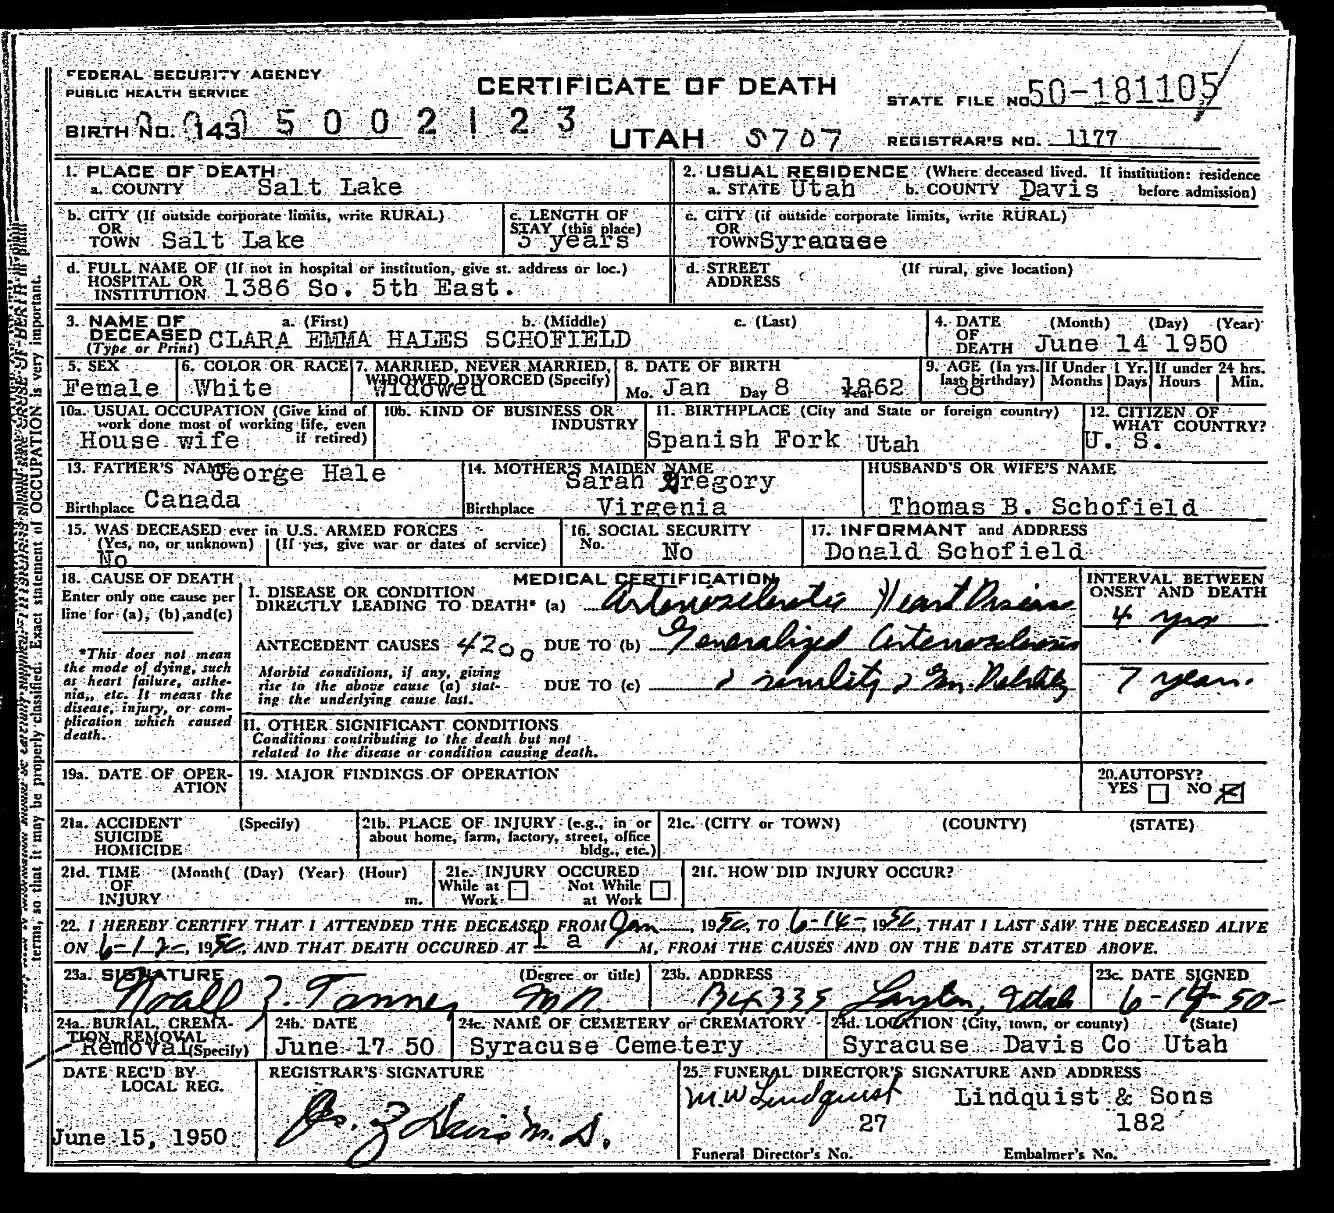 FEDERAL SECURITY AGENCY
PUBLIC HEALTH SERVICE
CERTIFICATE OF DEATH
STATE FILE NO. 50-181105
BIRTH NO. 143 5 0 0 2 1 2 3
UTAH 5707
REGISTRAR'S NO. 1177
1. PLACE OF DEATH
a. COUNTY Salt Lake
2. USUAL RESIDENCE (Where deceased lived. If institution: residence
a. STATE Utah b. COUNTY Davis before admission)
b. CITY (If outside corporate limits, write RURAL)
OR
TOWN Salt Lake
c. LENGTH OF
STAY (this place)
3 years
c. CITY (if outside corporate limits, write RURAL)
OR
TOWN Syracuse
d. FULL NAME OF (If not in hospital or institution, give st. address or loc.)
HOSPITAL OR
INSTITUTION 1386 So. 5th East.
d. STREET (If rural, give location)
ADDRESS
3. NAME OF a. (First) b. (Middle) c. (Last)
DECEASED CLARA EMMA HALES SCHOFIELD
(Type or Print)
4. DATE (Month) (Day) (Year)
OF
DEATH June 14 1950
5. SEX
Female
6. COLOR OR RACE
White
7. MARRIED, NEVER MARRIED,
WIDOWED, DIVORCED (Specify)
Widowed
8. DATE OF BIRTH
Mo. Jan Day 8 Year 1862
9. AGE (In yrs. last birthday)
88
If Under 1 Yr.
Months Days
If under 24 hrs.
Hours Min.
10a. USUAL OCCUPATION (Give kind of
work done most of working life, even
if retired)
House wife
10b. KIND OF BUSINESS OR
INDUSTRY
11. BIRTHPLACE (City and State or foreign country)
Spanish Fork Utah
12. CITIZEN OF
WHAT COUNTRY?
U. S.
13. FATHER'S NAME George Hale
Birthplace Canada
14. MOTHER'S MAIDEN NAME
Sarah Gregory
Birthplace Virgenia
HUSBAND'S OR WIFE'S NAME
Thomas B. Schofield
15. WAS DECEASED ever in U.S. ARMED FORCES
(Yes, no, or unknown) (If yes, give war or dates of service)
No
16. SOCIAL SECURITY
No. No
17. INFORMANT and ADDRESS
Donald Schofield
18. CAUSE OF DEATH
Enter only one cause per
line for (a), (b), and (c)
*This does not mean
the mode of dying, such
as heart failure, asthe-
nia,, etc. It means the
disease, injury, or com-
plication which caused
death.
MEDICAL CERTIFICATION
I. DISEASE OR CONDITION
DIRECTLY LEADING TO DEATH* (a) Arteriosclerotic Heart Disease
ANTECEDENT CAUSES 4200 DUE TO (b) Generalized Arteriosclerosis
Morbid conditions, if any, giving
rise to the above cause (a) stat-
ing the underlying cause last.
DUE TO (c) senility Debility
INTERVAL BETWEEN
ONSET AND DEATH
4 yrs
7 years.
II. OTHER SIGNIFICANT CONDITIONS
Conditions contributing to the death but not
related to the disease or condition causing death.
19a. DATE OF OPER-
ATION
19. MAJOR FINDINGS OF OPERATION
20. AUTOPSY?
YES NO
21a. ACCIDENT (Specify)
SUICIDE
HOMICIDE
21b. PLACE OF INJURY (e.g., in or
about home, farm, factory, street, office
bldg., etc.)
21c. (CITY or TOWN) (COUNTY) (STATE)
21d. TIME (Month( (Day) (Year) (Hour)
OF
INJURY m.
21e. INJURY OCCURED
While at Not While
Work at Work
21f. HOW DID INJURY OCCUR?
22. I HEREBY CERTIFY THAT I ATTENDED THE DECEASED FROM Jan, 1950, TO 6-14-, 1950, THAT I LAST SAW THE DECEASED ALIVE
ON 6-12-, 1950, AND THAT DEATH OCCURED AT 1 a M, FROM THE CAUSES AND ON THE DATE STATED ABOVE.
23a. SIGNATURE (Degree or title)
Noall Z. Tanner M.D.
23b. ADDRESS
Bx 335 Layton, Utah
23c. DATE SIGNED
6-14-50-
24a. BURIAL, CREMA-
TION, REMOVAL
Removal (Specify)
24b. DATE
June 17 50
24c. NAME OF CEMETERY or CREMATORY
Syracuse Cemetery
24d. LOCATION (City, town, or county) (State)
Syracuse Davis Co Utah
DATE REC'D BY
LOCAL REG.
June 15, 1950
REGISTRAR'S SIGNATURE
25. FUNERAL DIRECTOR'S SIGNATURE AND ADDRESS
M W Lindquist Lindquist & Sons
27 182
Funeral Director's No. Embalmer's No.
terms, so that it may be properly classified. Exact statement of OCCUPATION is very important.